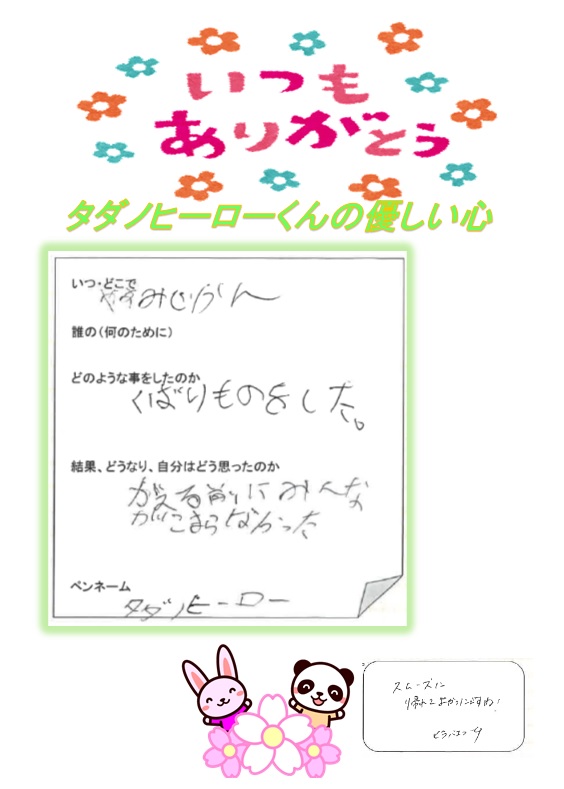 いつも
ありがとう
タダノヒーローくんの優しい心
いつ・どこで
休みじかん
誰の（何のために）
どのような事をしたのか
くばりものをした。
結果、どうなり、自分はどう思ったのか
がえる前にみんな
がこまらなかった
ペンネーム
タダノヒーロー
スムーズに
帰れてよかったですね！